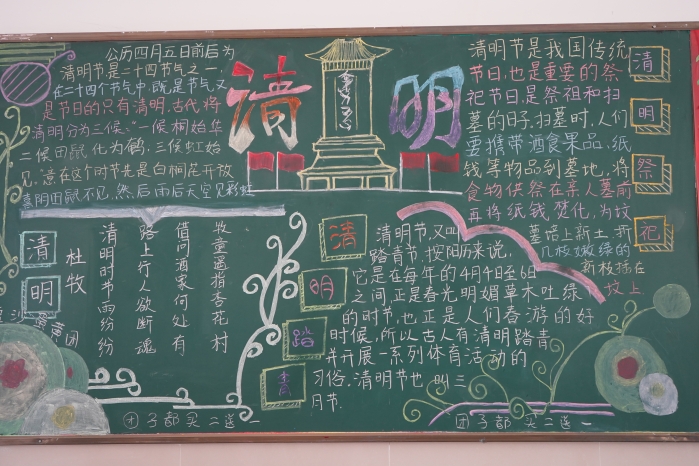 公历四月五日前后为
清明节是二十四节气之一,
在二十四个节气中,既是节气又
是节日的只有清明,古代将
清明分为三候:"一候桐始华
二候田鼠化为鹌,三候虹始
见,"意在这个时节先是白桐花开放
喜阴田鼠不见,然后雨后天空见彩虹
清明
清明节是我国传统
节日,也是重要的祭
祀节日,是祭祖和扫
墓的日子.扫墓时,人们
要携带酒食果品、纸
钱等物品到墓地,将
食物供祭在亲人墓前
再将纸钱焚化,为坟
墓培上新土,折
几枝嫩绿的
新枝插在
坟上
清
明
祭
祀
清
明
杜牧
清明时节雨纷纷
路上行人欲断魂
借问酒家何处有
牧童遥指杏花村
清
明
踏
青
清明节,又叫
踏青节,按阳历来说,
它是在每年的4月4日至6日
之间,正是春光明媚草木吐绿
的时节,也正是人们春游的好
时候,所以古人有清明踏青
并开展一系列体育活动的
习俗.清明节也叫三
月节.
团子都买二送一
团子都买二送一